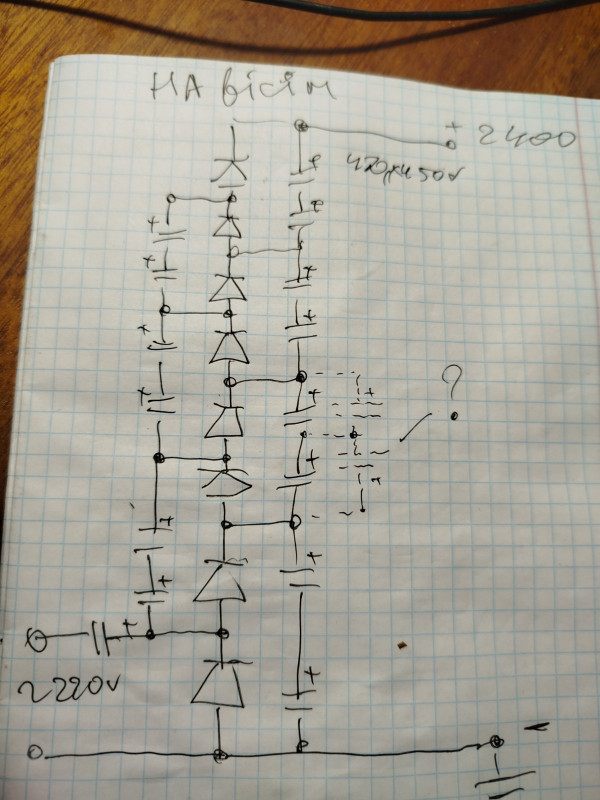 НА вісім
+ 2400
470μ×450v
?
~220v
-